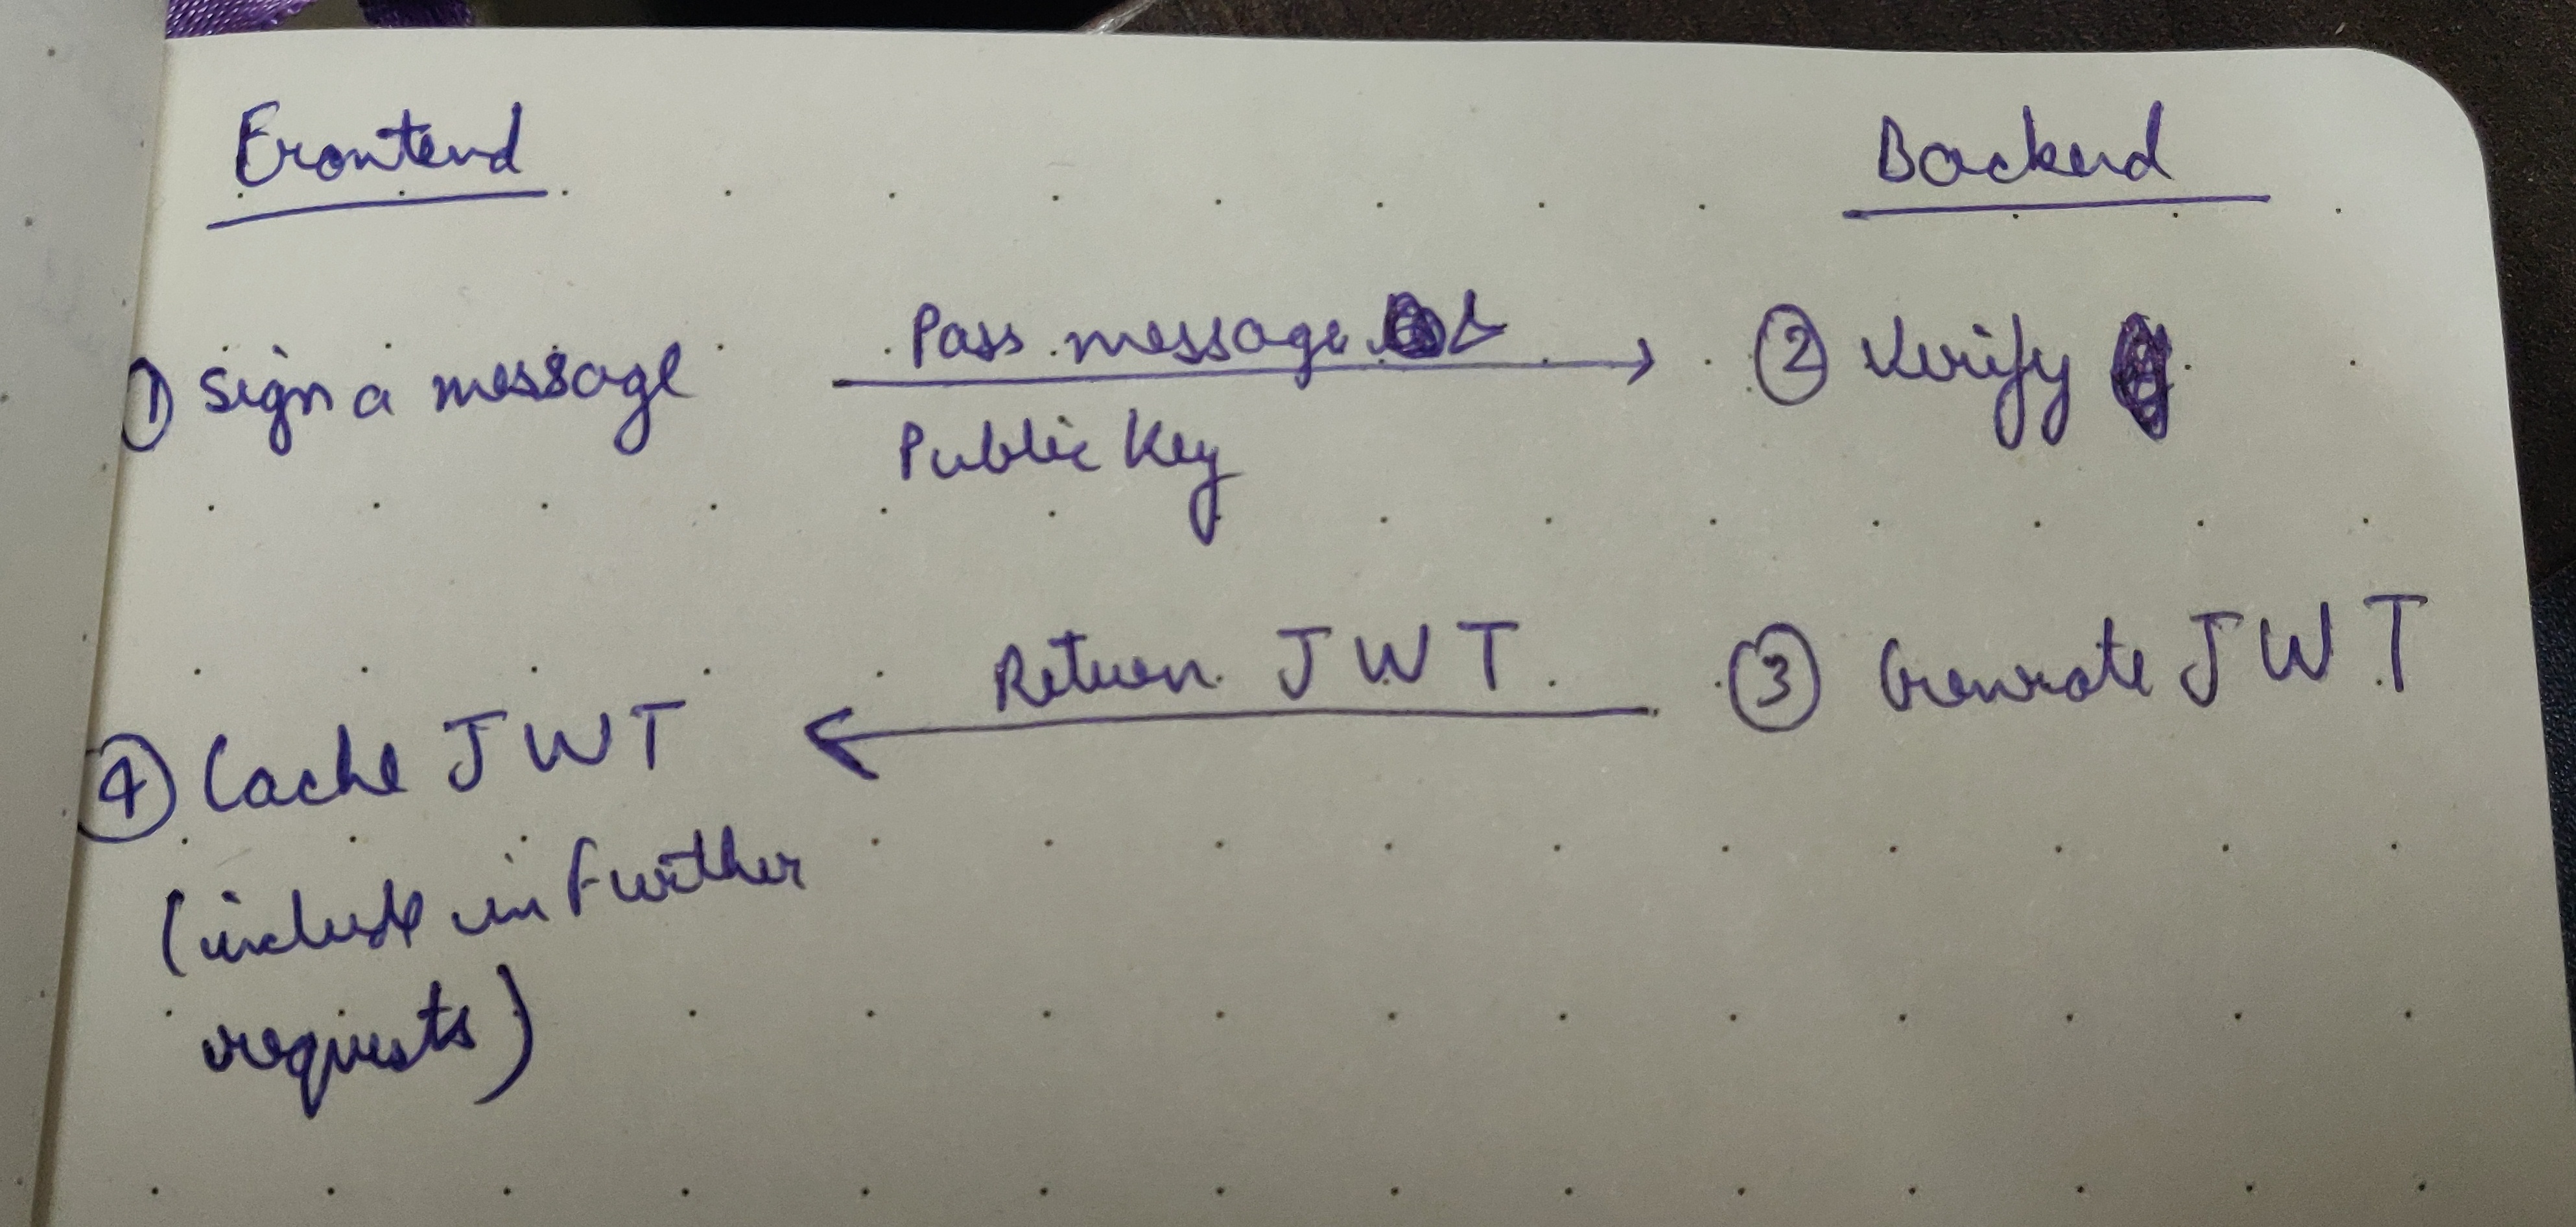 Frontend
Backend
① Sign a message
Pass message &
Public Key
② Verify
③ Generate JWT
Return JWT
④ Cache JWT
(include in Further
requests)